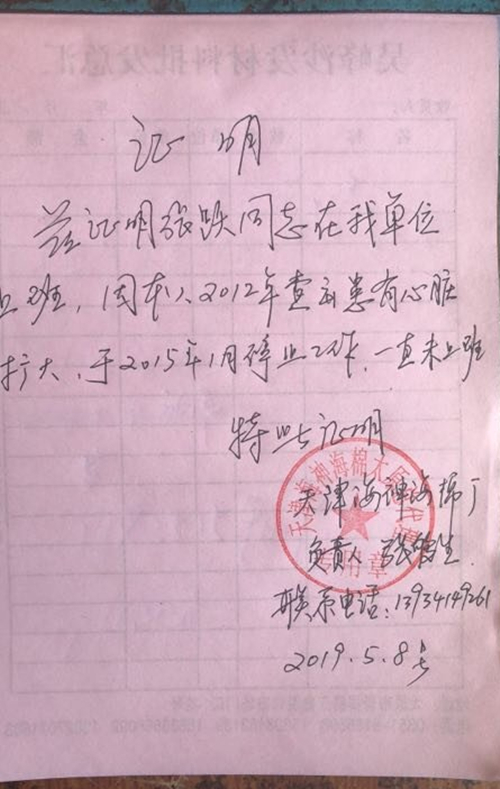 证 明
兹证明张跃同志在我单位
上班，因本人2012年查出患有心脏
扩大，于2015年1月辞止工作，一直未上班
特此证明
天津海神海棉厂
负责人 张 生
联系电话：13934149261
2019.5.8号
天津海神海棉太原
专用章
吴峰沙发材料批发总汇